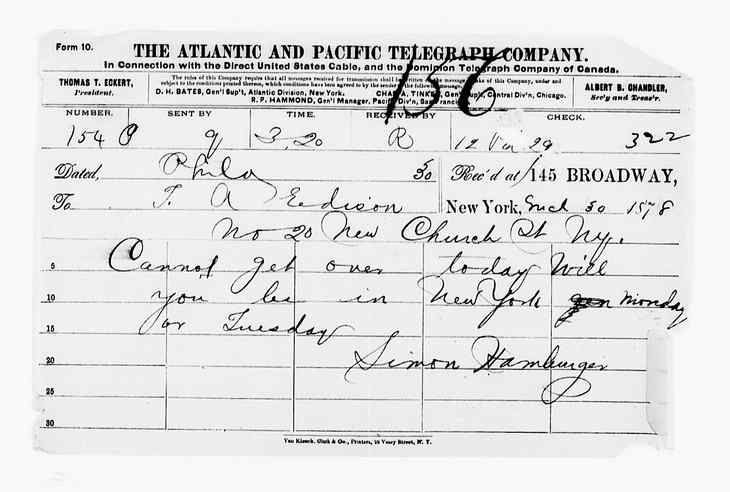 156
Form 10.
THE ATLANTIC AND PACIFIC TELEGRAPH COMPANY.
In Connection with the Direct United States Cable, and the Dominion Telegraph Company of Canada.
THOMAS T. ECKERT,
President.
The rules of this Company require that all messages received for transmission shall be written on the blanks of this Company, under and
subject to the conditions printed thereon, which conditions have been agreed to by the sender of the following message.
D. H. BATES, Gen'l Sup't, Atlantic Division, New York. CHAS. A. TINKER, Gen'l Sup't, Central Div'n, Chicago.
R. P. HAMMOND, Gen'l Manager, Pacific Div'n, San Francisco.
ALBERT B. CHANDLER,
Sec'y and Treas'r.
NUMBER. SENT BY TIME. RECEIVED BY CHECK.
154 9 3,20 R 12 29 322
Dated, Phila 30 Rec'd at 145 BROADWAY,
To T. A Eedison New York, Mch 30 1878
No 20 New Church St Ny.
5 Cannot get over today Will
10 you be in New York Monday
15 or Tuesday
20 Simon Hamburger
25
30
Van Kleeck, Clark & Co., Printers, 10 Vesey Street, N. Y.